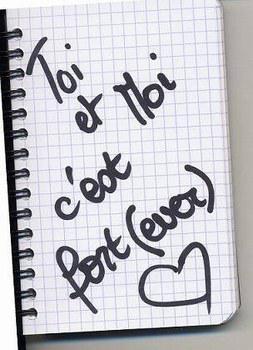 Toi
et Moi
c'est
fort (ever)